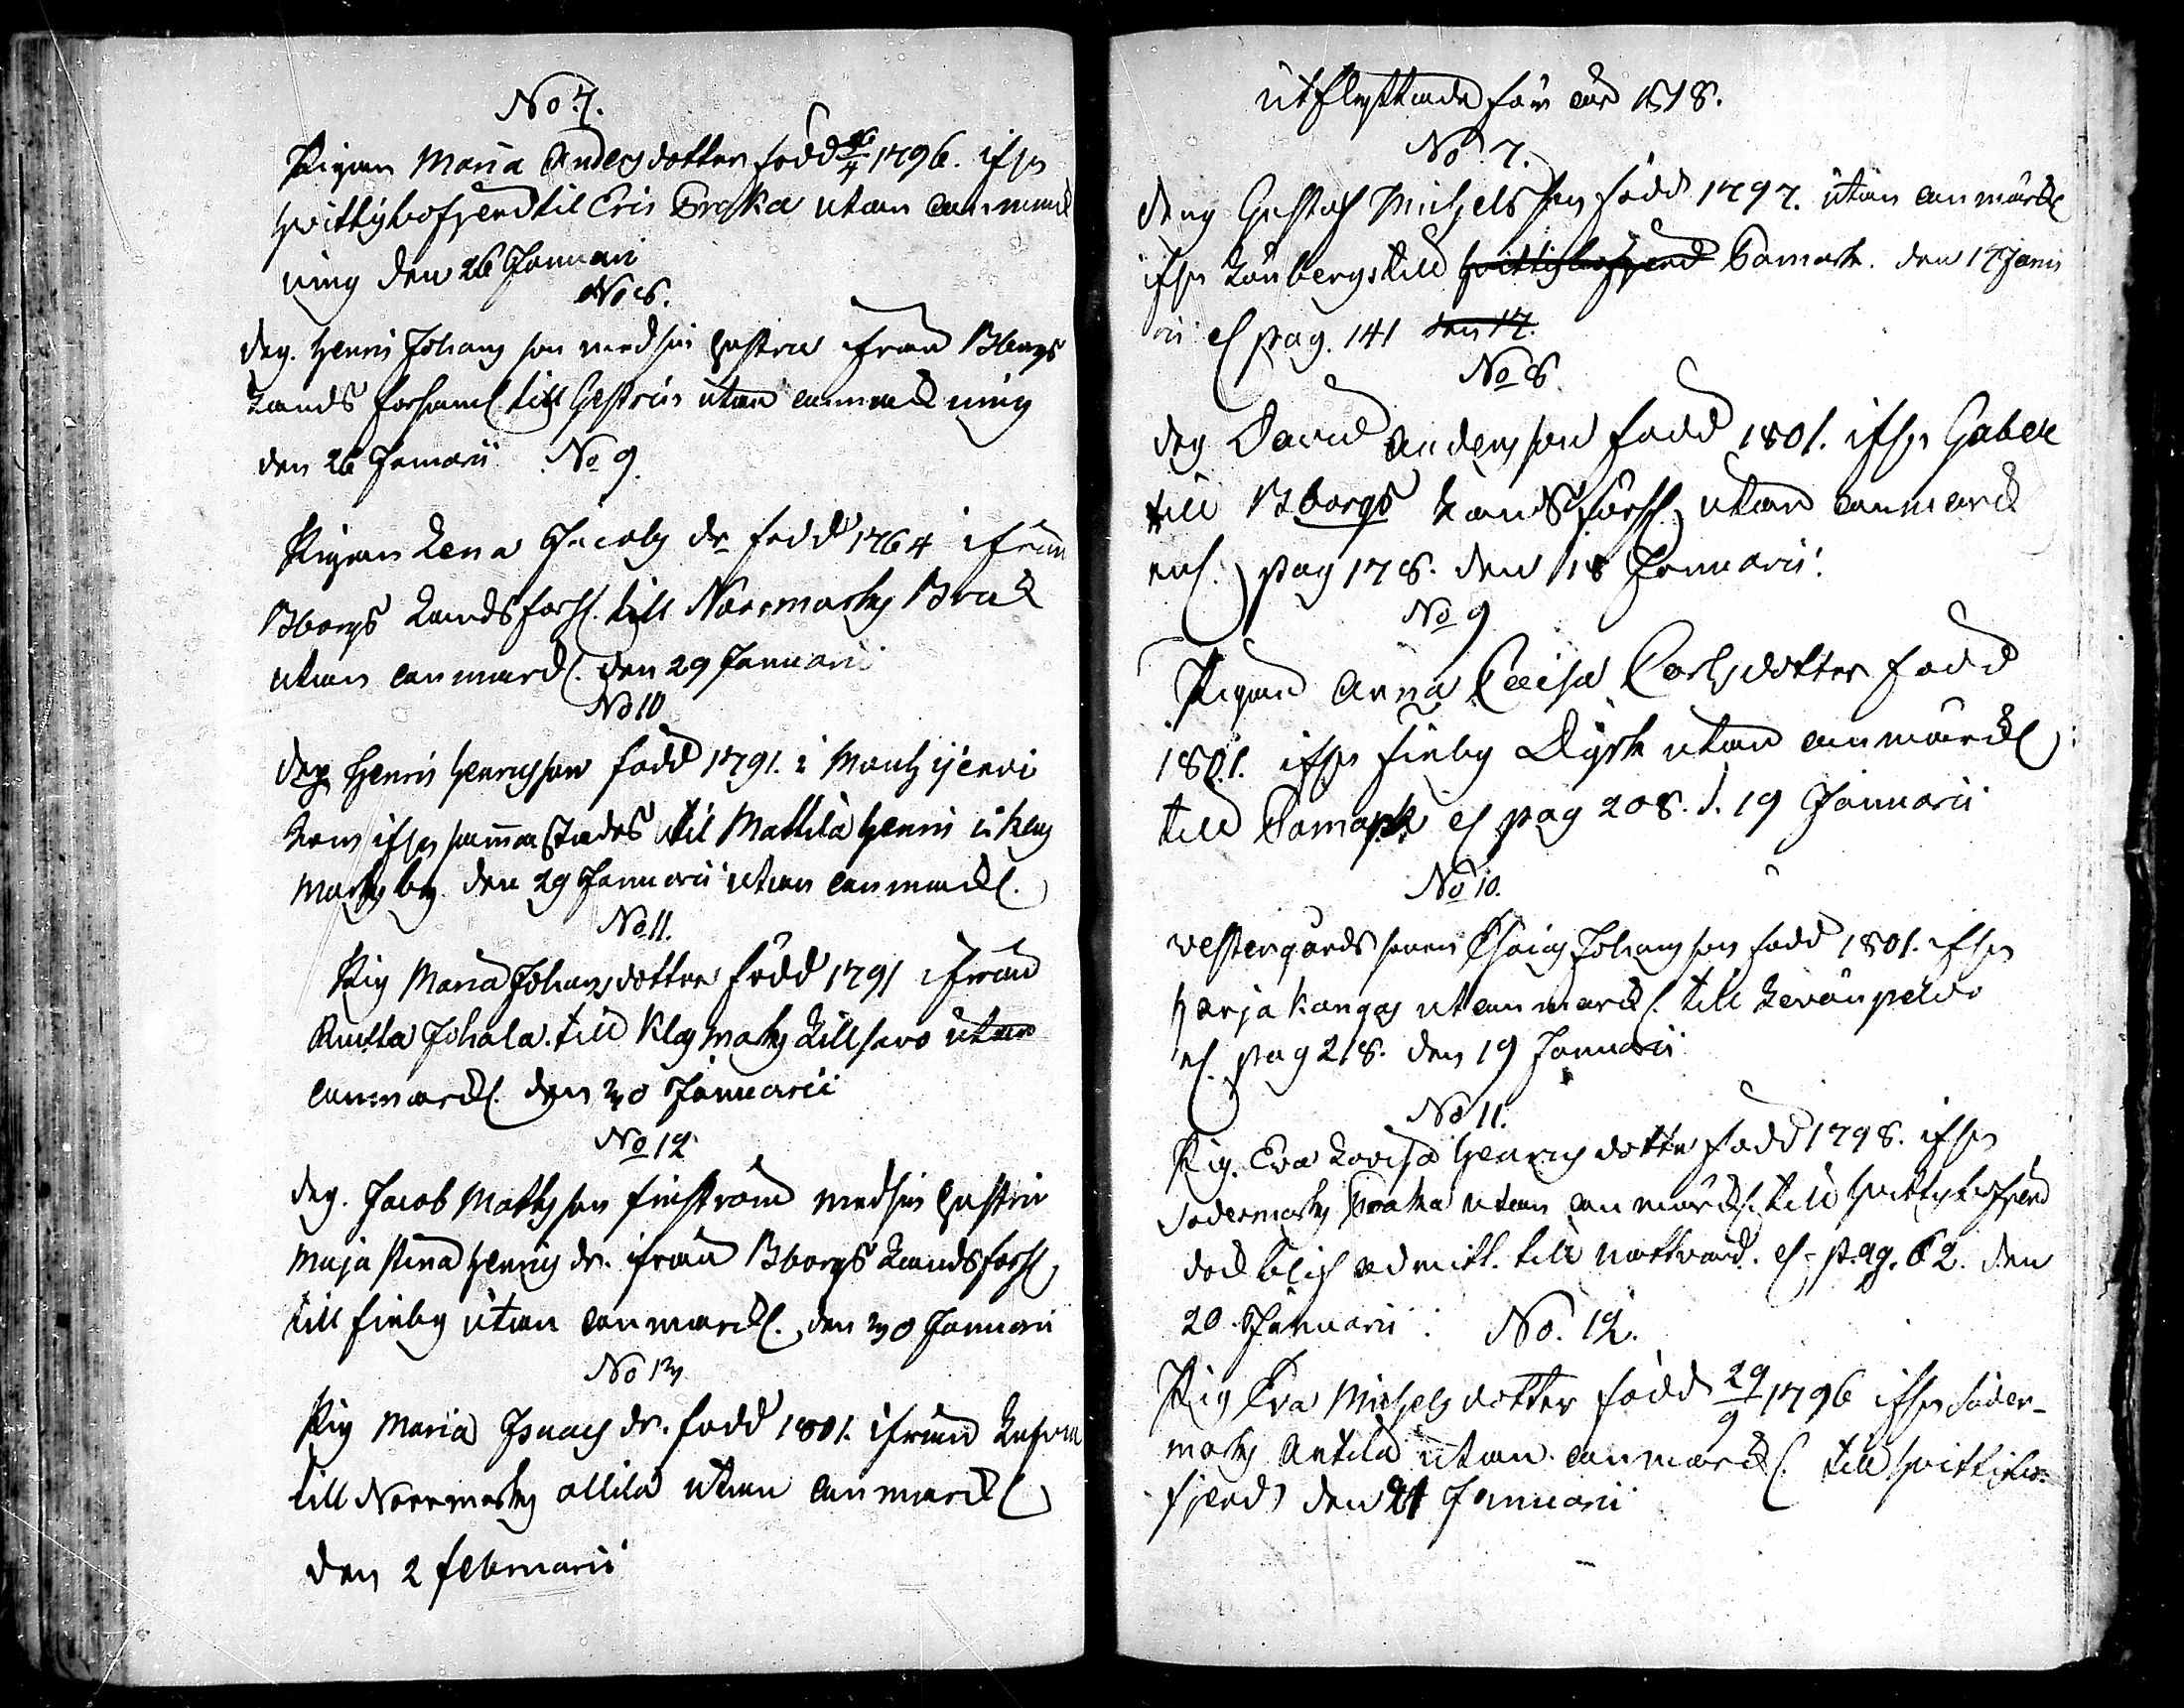 No 7.
Pigan Maria Andersdotter född 26/4 1796. ifrån
hvittisbofjerd til Eris Braka utan anmärk
ning den 26 Januari
No 8.
drg. Henric Johans son med sin hustru ifrån Bborgs
Lands forsaml till utan anmärckning
den 26 Januarii No 9.
Pigan Lena Jacobs dr född 1764 ifrån
Bborgs Landsförs. till Norrmarks Bruk
utan anmärck. den 29 Januarii
No 10
drg Henric Henricsson född 1791. i
ifrån samma stades til Mattila Henric i Klas
marks by. den 29 Januarii utan anmärck.
No 11.
Pig Maria Johansdotter född 1791 ifrån
Johala. till Klasmarks Lillsavo utan
anmärck. den 30 Januarii
No 12
drg. Jacob Mattsson finström med sin hustru
Maja Stina Henrics dr. ifrån Bborgs Landsförs
till finby utan anmärck. den 30 Januarii
No 13
Pig Maria Isaacs dr. född 1801. ifrån
till Norrmarks Ollila utan anmärck
den 2 februarii
utflyttande för år 1818.
No 7.
dreng Gustaf Michels son född 1797. utan anmärck
ifrån till hvittisbofjerd Pamark. den 17 Janu
rii cf pag. 141 den 17.
No 8.
drg David Andersson född 1801. ifrån Gabele
till Bborgs Landsförs. utan anmärck
cf. pag 178. den 18 Januarii.
No 9
Pigan Anna Caisa Carlsdotter född
1801. ifrån finby Dyster utan anmärck
till Pamark cf pag 208. d. 19 Januarii
No 10.
Westergårds sonen Esaias Johansson född 1801. ifrån
Harjakangas ut anmärck. till Levänpeldo
cf. pag 218. den 19 Januarii
No 11.
Pig. Eva Lovisa Henricsdotter född 1798. ifrån
Södermarks Praka utan anmärck. till hvittisbofjerd
dock ej admitt. till nattvard. cf. pag. 62. den
20 Januarii. No. 12.
Pig Eva Michelsdotter född 29/9 1796 ifrån Söder-
marks Antila utan anmärck. till hvittisbo-
fjerd den 21 Januarii